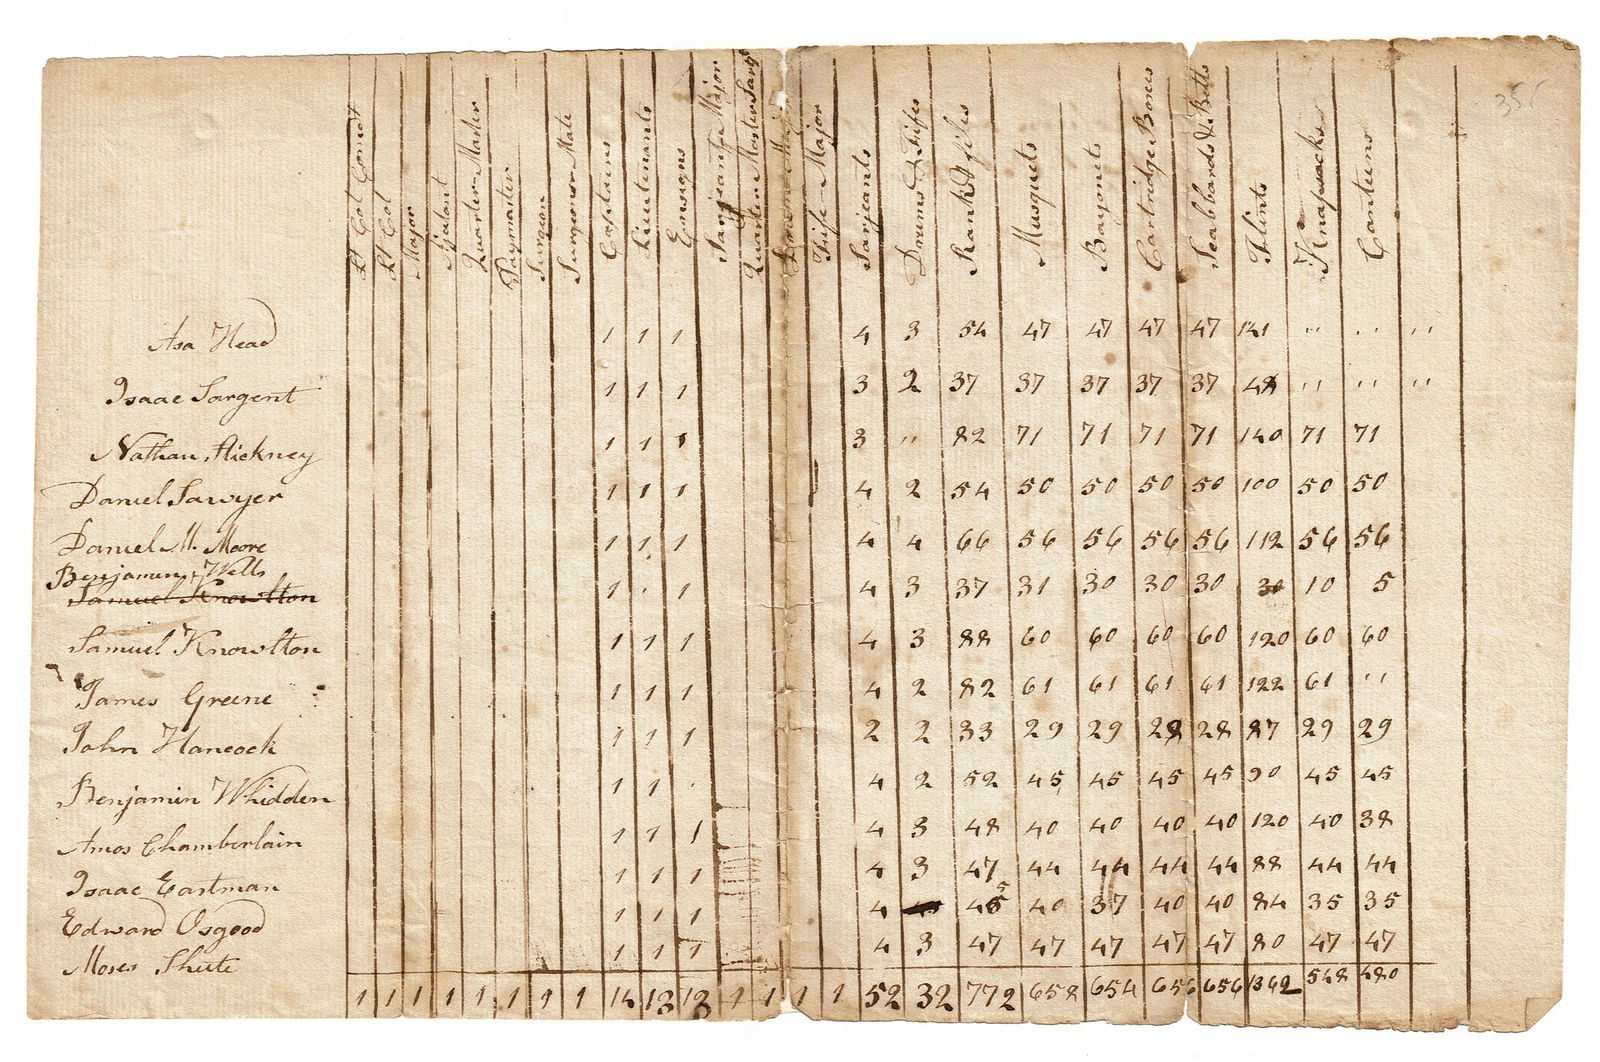 356
Lt Col Comdt
Lt Col
Major
Ajutant
Quarter-Master
Paymaster
Surgeon
Surgeons-Mate
Captains
Lieutenants
Ensigns
Sarjeant-Major
Quarter-Master Sarjt
Drum-Major
Fife-Major
Sarjeants
Drums & Fifes
Rank & files
Musquets
Bayonets
Cartridge Boxes
Scabbards & Belts
Flints
Knapsacks
Canteens
Asa Head 1 1 1 4 3 54 47 47 47 47 141 " " "
Isaac Sargent 1 1 1 3 2 37 37 37 37 37 48 " " "
Nathan Hickney 1 1 1 3 " 82 71 71 71 71 140 71 71
Daniel Sawyer 1 1 1 4 2 54 50 50 50 50 100 50 50
Daniel M. Moore 1 1 1 4 4 66 56 56 56 56 112 56 56
Benjamin Wells
Samuel Knowlton 1 · 1 4 3 37 31 30 30 30 30 10 5
Samuel Knowlton 1 1 1 4 3 88 60 60 60 60 120 60 60
James Greene 1 1 1 4 2 82 61 61 61 61 122 61 "
John Hancock 1 1 1 2 2 33 29 29 28 28 87 29 29
Benjamin Whidden 1 1 · 4 2 52 45 45 45 45 90 45 45
Amos Chamberlain 1 1 1 4 3 48 40 40 40 40 120 40 38
Isaac Eastman 1 1 1 4 3 47 44 44 44 44 88 44 44
Edward Osgood 1 1 1 4 45 40 37 40 40 84 35 35
Moses Shute 1 1 1 4 3 47 47 47 47 47 80 47 47
1 1 1 1 1 1 1 1 14 13 13 1 1 1 1 52 32 772 658 654 656 656 1362 548 480